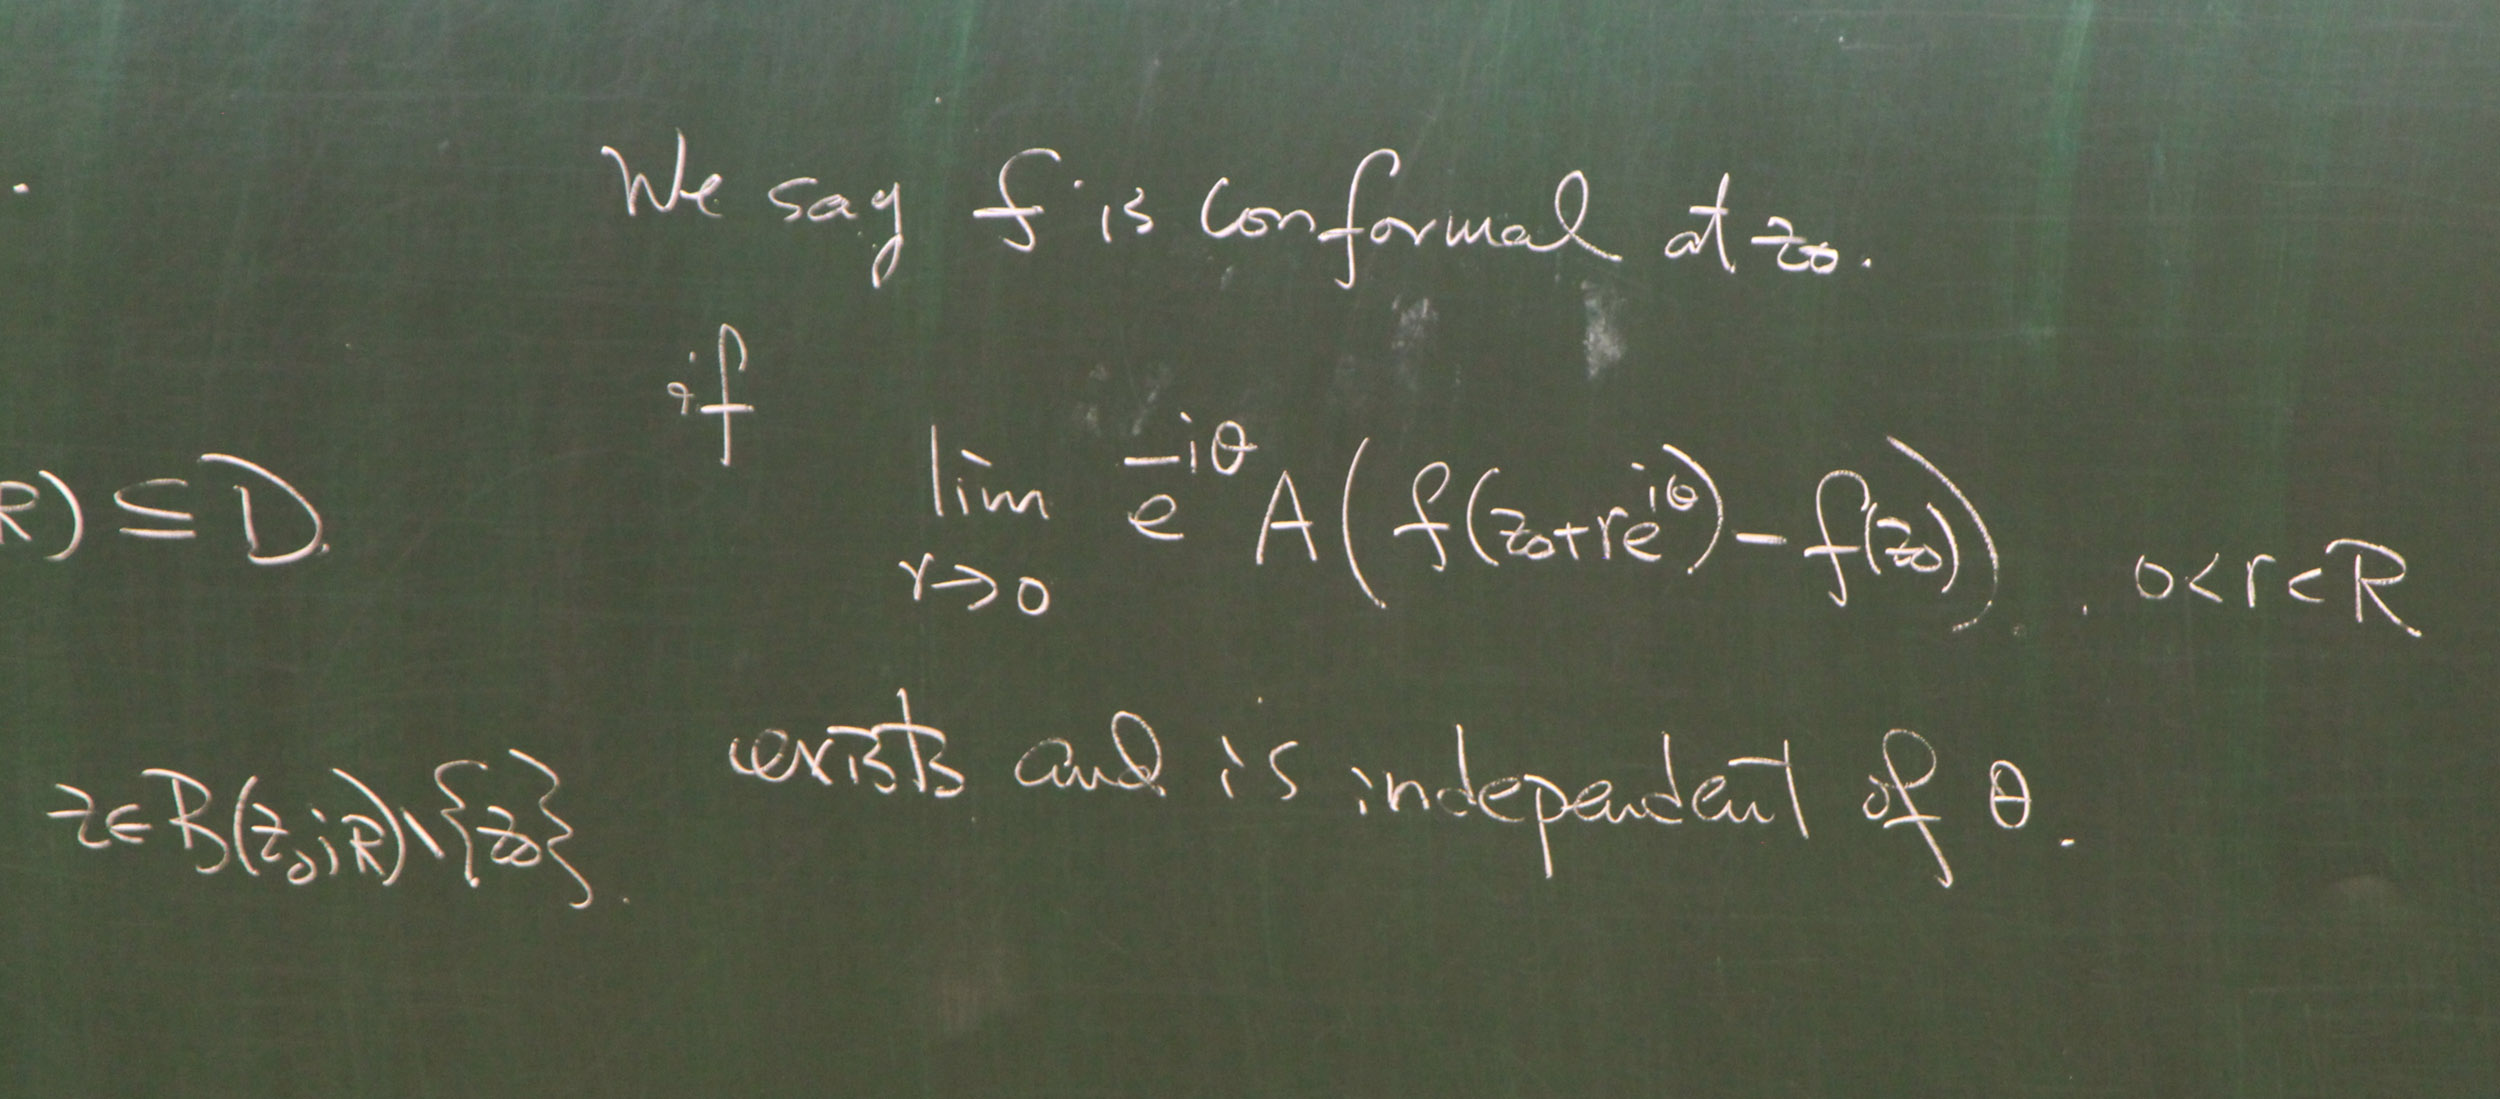 We say f is conformal at z₀.
if
lim_{r→0} e^{-iθ} A(f(z₀+re^{iθ})-f(z₀)). 0<r<R
exists and is independent of θ.
R) ⊆ D.
z∈B(z₀;R)\{z₀}.